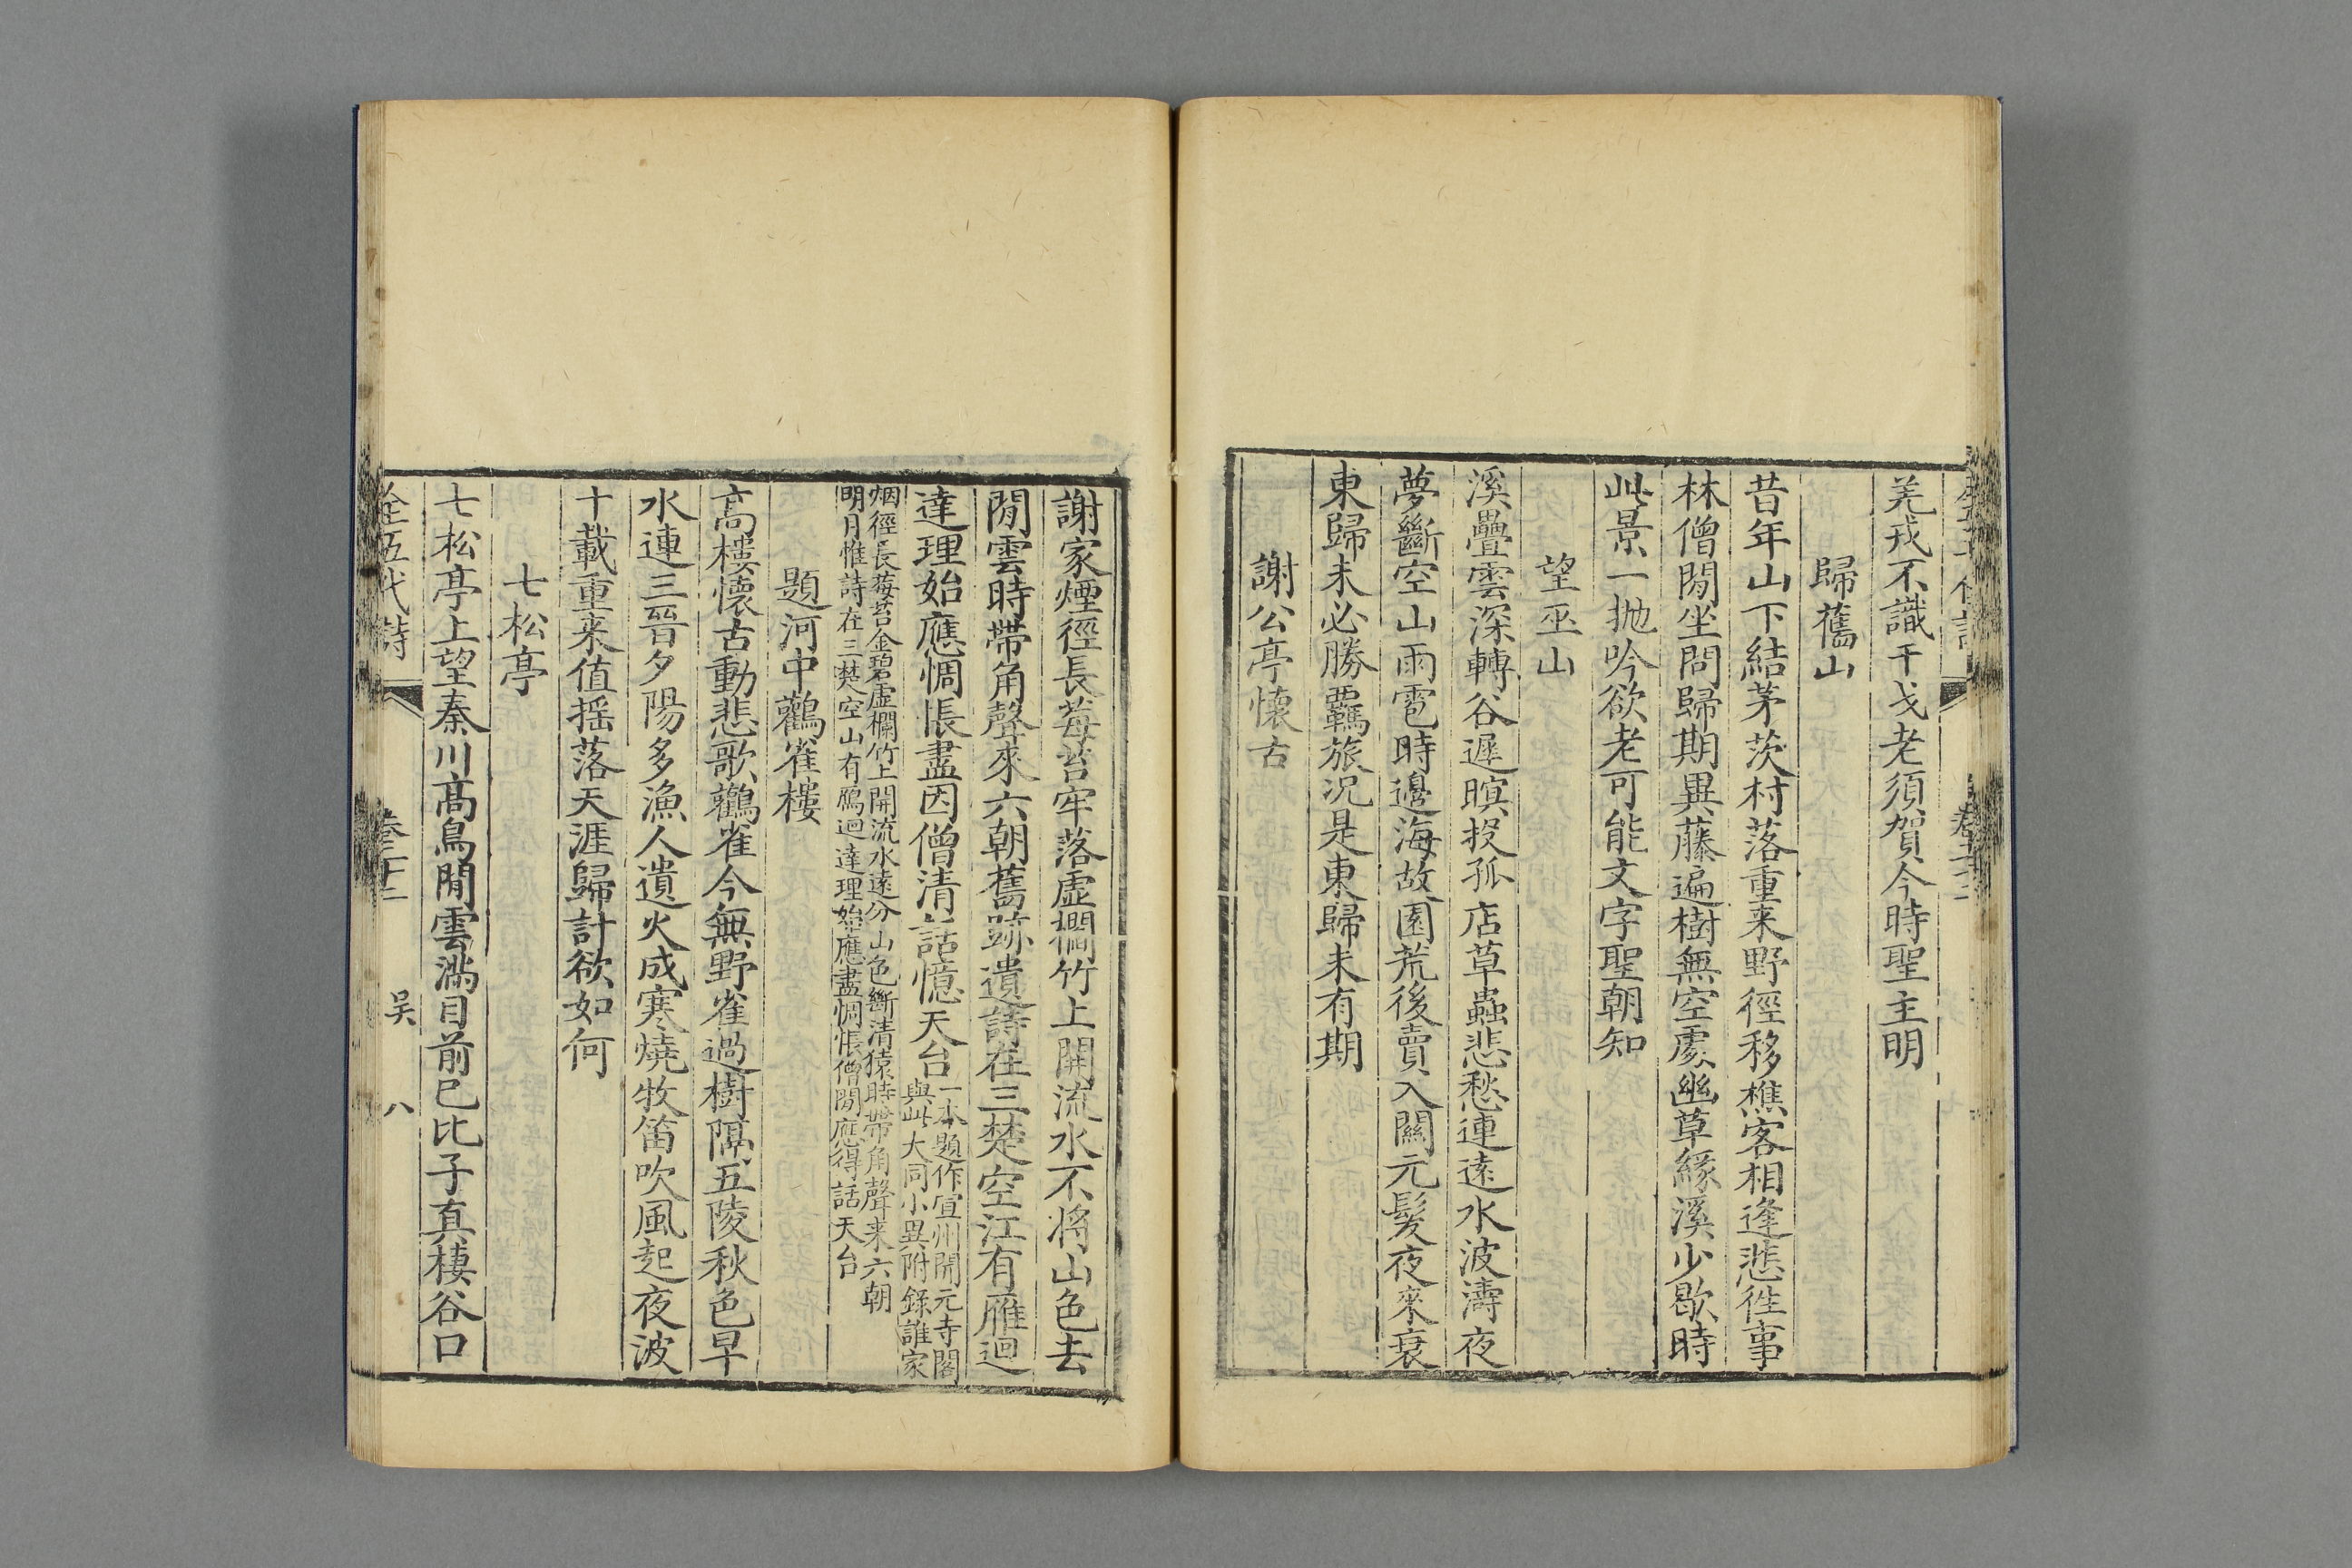 羌戎不識干戈老須賀今時聖主明
歸舊山
昔年山下結茅茨村落重来野徑移樵客相逢悲徃事
林僧閒坐問歸期異藤遍樹無空處幽草緣溪少歇時
此景一抛吟欲老可能文字聖朝知
望巫山
溪疊雲深轉谷遲暝投孤店草蟲悲愁連遠水波濤夜
夢斷空山雨雹時邊海故園荒後賣入關元髮夜來衰
東歸未必勝羈旅況是東歸未有期
謝公亭懷古
謝家煙徑長莓苔牢落虛欄竹上開流水不将山色去
閒雲時帶角聲來六朝舊跡遺詩在三楚空江有雁迴
達理始應惆悵盡因僧清話憶天台一本題作宣州開元寺閣
與此大同小異附錄誰家
烟徑長莓苔金碧虛欄竹上開流水遠分山色斷清猿時帶角聲来六朝
明月惟詩在三楚空山有鴈迴達理始應盡惆悵僧閒應得話天台
題河中鸛雀樓
高樓懷古動悲歌鸛雀今無野雀過樹隔五陵秋色早
水連三晉夕陽多漁人遺火成寒燒牧笛吹風起夜波
十載重来值摇落天涯歸計欲如何
七松亭
七松亭上望秦川高鳥閒雲滿目前已比子真棲谷口
全五代詩 卷二十二 吴 八